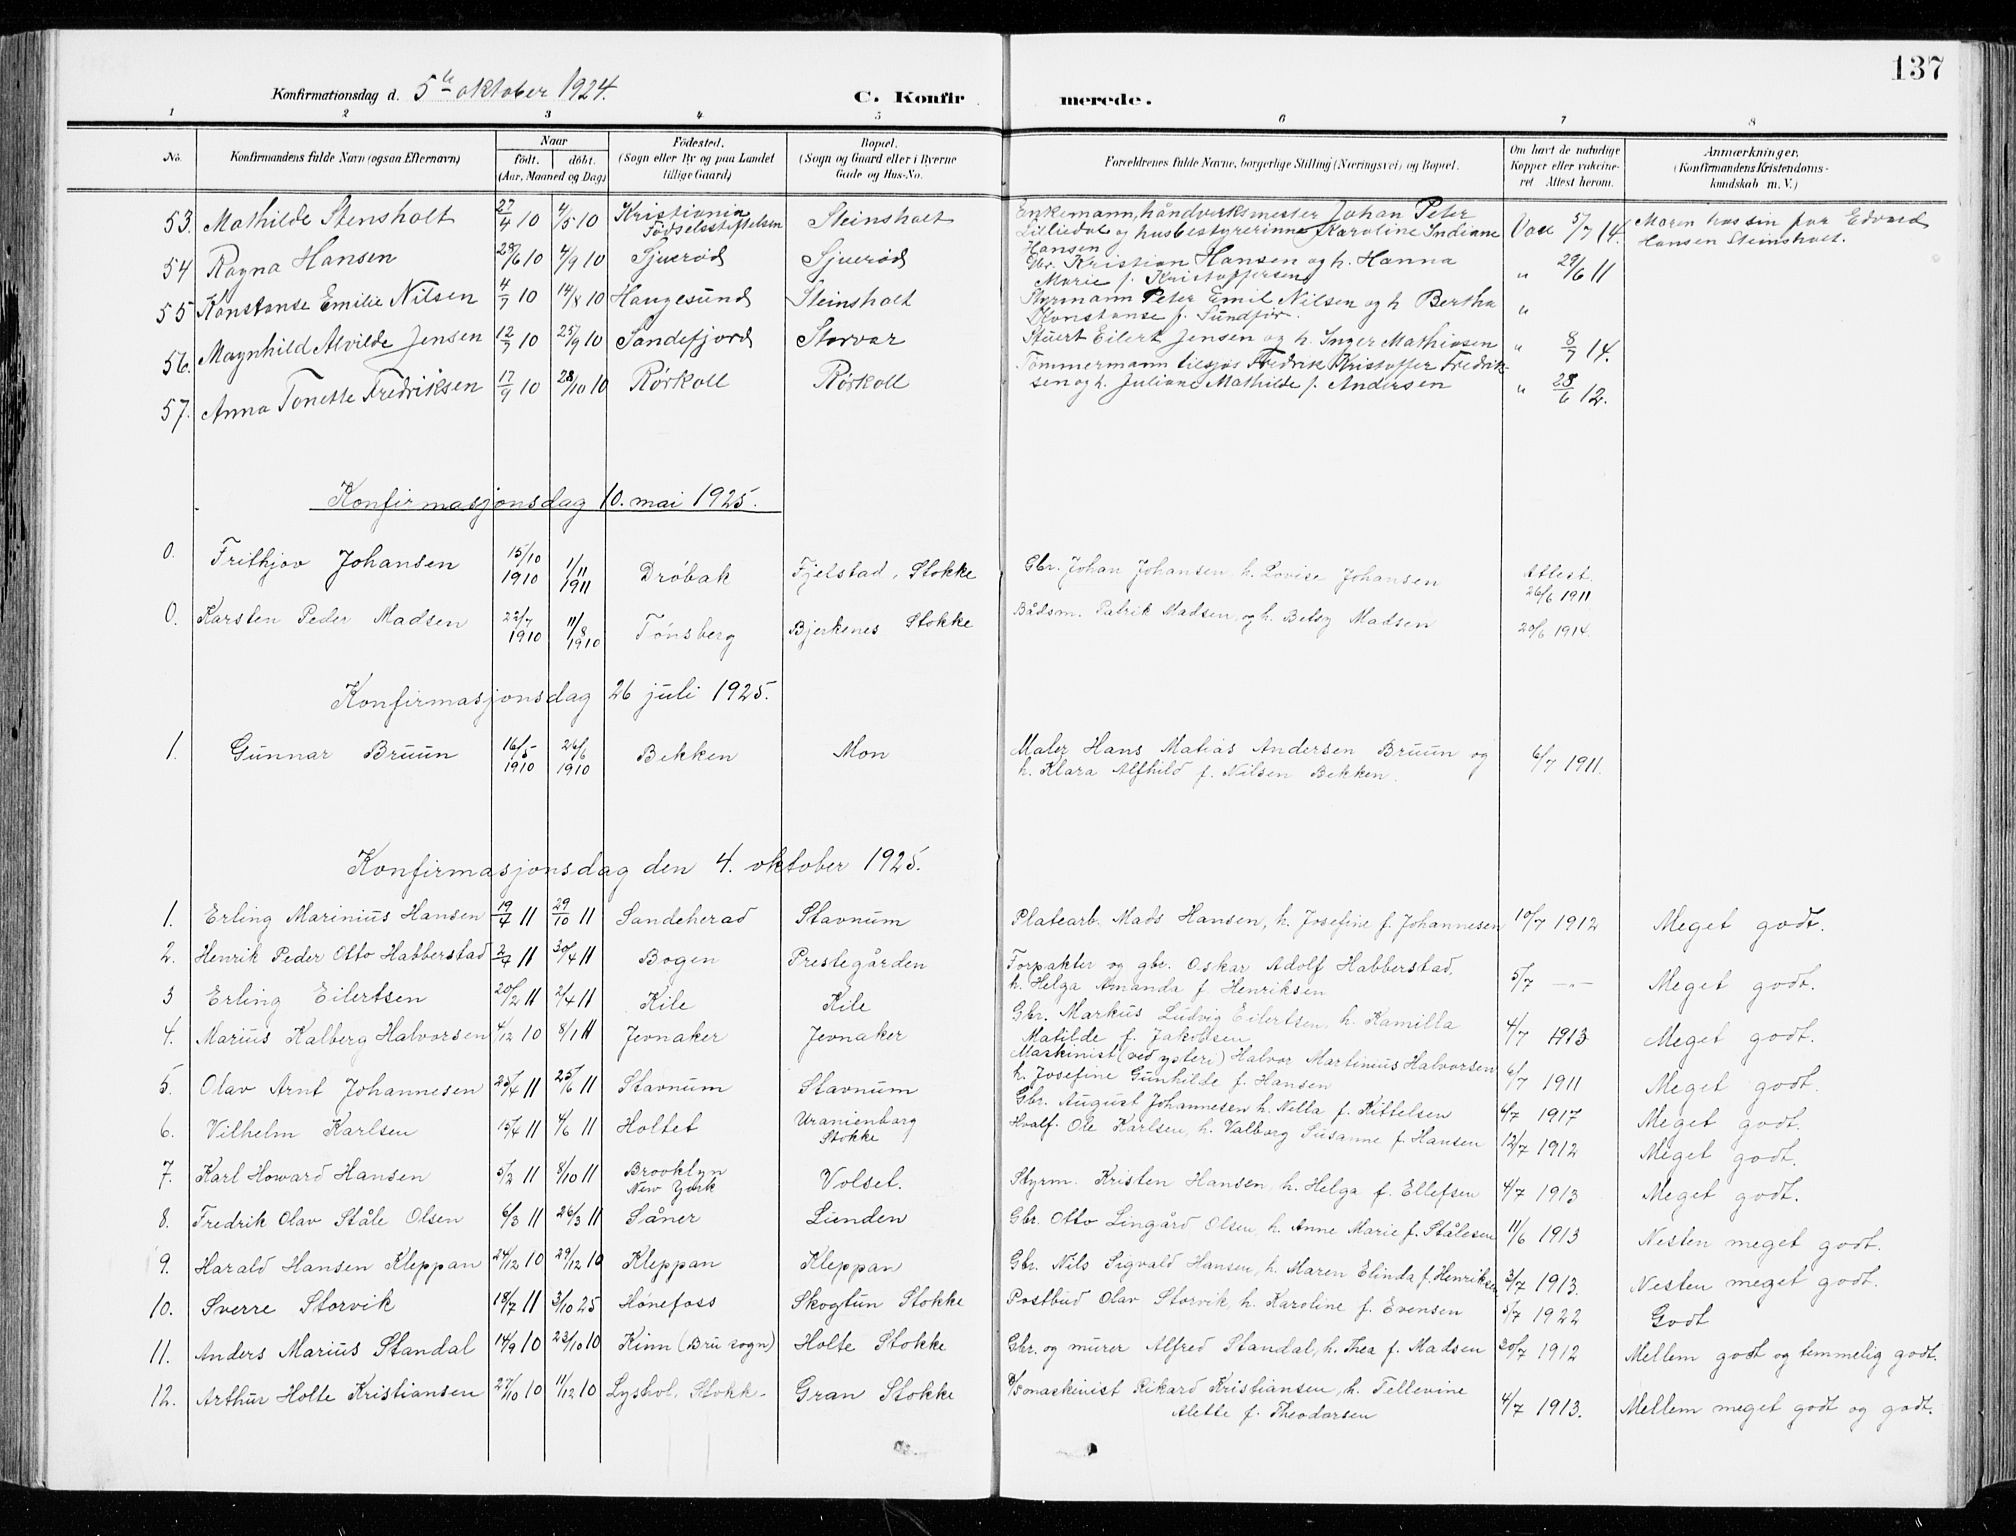 137
Konfirmationsdag d. 5te oktober 1924. C. Konfirmerede.
1 2 3 4 5 6 7 8
No. Konfirmandens fulde Navn (ogsaa Efternavn) Naar født. døbt. (Aar, Maaned og Dag) Fødested. (Sogn eller By og paa Landet tillige Gaard) Bopæl. (Sogn og Gaard eller i Byerne Gade og Hus-No. Forældrenes fulde Navne, borgerlige Stilling (Næringsvei) og Bopæl. Om havt de naturlige Kopper eller vakcineret Attest herom. Anmærkninger. (Konfirmandens Kristendomskundskab m. V.)
53. Mathilde Stensholt 27/4 10 4/5 10 Kristiania Fødselsstiftelsen Steinsholt Enkemann, håndverksmester Johan Peter Lilliedal og husbestyrerinne Karoline Indiane Hansen Vac 5/7 14. Maren hos sin far Edvard Hansen Steinsholt.
54 Ragna Hansen 28/6 10 4/9 10 Sjuerød Sjuerød Gbr. Kristian Hansen og h. Hanna Marie f. Kristoffersen " 29/6 11
55 Konstanse Emilie Nilsen 4/7 10 14/8 10 Haugesund Steinsholt Styrmann Peter Emil Nilsen og h Bertha Konstanse f. Sundfør. "
56. Magnhild Alvilde Jensen 12/7 10 25/9 10 Sandefjord Storvar Stuert Eilert Jensen og h. Inger Mathiasen " 8/7 14.
57. Anna Tonette Fredriksen 17/9 10 28/10 10 Rørkoll Rørkoll Tømmermann tilsjøs Fredrik Kristoffer Fredriksen og h. Juliane Mathilde f. Andersen " 28/6 12.
Konfirmasjonsdag 10. mai 1925.
0. Frithjov Johansen 15/10 1910 1/11 1911 Drøbak Fjelstad, Stokke Gbr. Johan Johansen, h. Lovise Johansen Attest. 26/6 1911
0. Karsten Peder Madsen 22/7 1910 11/8 1910 Tønsberg Bjerkenes Stokke Bådsm. Patrik Madsen, og h. Betsy Madsen 20/6 1914.
Konfirmasjonsdag 26 juli 1925.
1. Gunnar Bruun 16/5 1910 26/6 1910 Bekken Mon Maler Hans Matias Andersen Bruun og h. Klara Alfhild f. Nilsen Bekken. 6/7 1911.
Konfirmasjonsdag den 4. oktober 1925.
1. Erling Marinius Hansen 19/7 11 29/10 11 Sandeherad Stavnum Platearb. Mads Hansen, h. Josefine f. Johannesen 10/7 1912 Meget godt.
2. Henrik Peder Otto Habberstad 2/4 11 30/4 11 Bogen Prestegården Forpakter og gbr. Oskar Adolf Habberstad, h. Helga Amanda f. Henriksen 5/7 —"— Meget godt.
3 Erling Eilertsen 20/2 11 2/4 11 Kile Kile Gbr. Markus Ludvig Eilertsen, h. Kamilla Matilde f. Jakobsen 4/7 1913 Meget godt.
4. Marius Kalberg Halvorsen 4/12 10 8/1 11 Jevnaker Jevnaker Maskinist (ved ysteri) Halvor Martinius Halvorsen h. Josefine Gunhilde f. Hansen 6/7 1911 Meget godt.
5. Olav Arnt Johannesen 23/4 11 25/6 11 Stavnum Stavnum Gbr. August Johannesen h. Nilla f. Kittelsen 4/7 1917 Meget godt.
6. Vilhelm Karlsen 15/4 11 4/6 11 Holtet Uranienborg Stokke Hvalf. Ole Karlsen, h. Valborg Susanne f. Hansen 12/7 1912 Meget godt.
7. Karl Howard Hansen 5/2 11 8/10 11 Brooklyn New York Volset. Styrm. Kristen Hansen, h. Helga f. Ellefsen 4/7 1913 Meget godt.
8. Fredrik Olav Ståle Olsen 6/3 11 26/3 11 Såner Lunden Gbr. Otto Lingård Olsen, h. Anne Marie f. Stålesen 11/6 1913 Nesten meget godt.
9. Harald Hansen Kleppan 24/12 10 29/12 10 Kleppan Kleppan Gbr. Nils Sigvald Hansen, h. Maren Elinda f. Henriksen 3/7 1913. Nesten meget godt.
10. Sverre Storvik 18/7 11 3/10 25 Hønefoss Skogtun Stokke Postbud Olav Storvik, h. Karoline f. Evensen 3/7 1922 Godt
11. Anders Marius Standal 14/9 10 23/10 10 Kinn (Bru sogn) Holte Stokke Gbr. og murer Alfred Standal, h. Thea f. Madsen 20/7 1912 Mellem godt og temmelig godt.
12. Arthur Holte Kristiansen 27/10 10 11/12 10 Lyshol, Stokk- Gran Stokke Rikard Kristiansen, h. Tellevine Alette f. Theodorsen 4/7 1913. Mellem meget godt og godt.